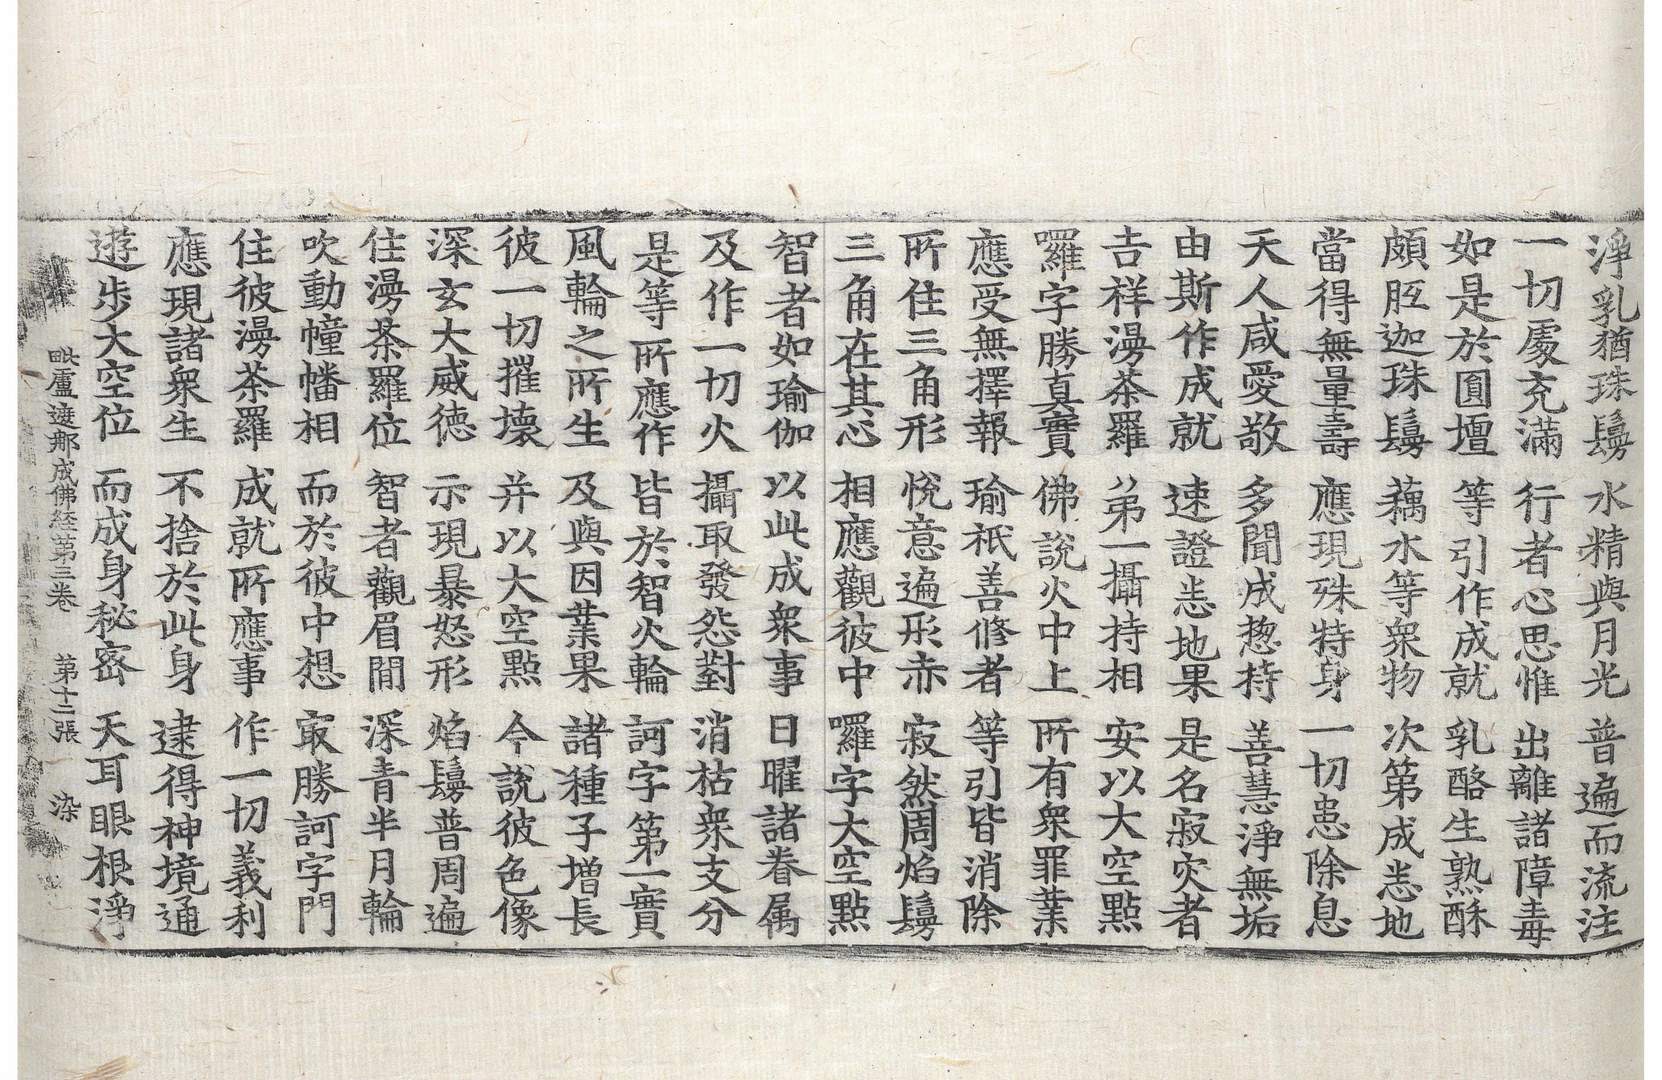 淨乳猶珠鬘　水精與月光　普遍而流注
一切處充滿　行者心思惟　出離諸障毒
如是於圓壇　等引作成就　乳酪生熟酥
頗胝迦珠鬘　藕水等衆物　次第成悉地
當得無量壽　應現殊特身　一切患除息
天人咸愛敬　多聞成揔持　善慧淨無垢
由斯作成就　速證悉地果　是名寂灾者
吉祥漫荼羅　第一攝持相　安以大空點
囉字勝真實　佛說火中上　所有衆罪業
應受無擇報　瑜祇善修者　等引皆消除
所住三角形　悅意遍形赤　寂然周焰鬘
三角在其心　相應觀彼中　囉字大空點
智者如瑜伽　以此成衆事　日曜諸眷属
及作一切火　攝取發怨對　消枯衆支分
是等所應作　皆於智火輪　訶字第一實
風輪之所生　及與因業果　諸種子增長
彼一切摧壞　并以大空點　今說彼色像
深玄大威德　示現暴怒形　焰鬘普周遍
住漫荼羅位　智者觀眉間　深青半月輪
吹動幢幡相　而於彼中想　㝡勝訶字門
住彼漫荼羅　成就所應事　作一切義利
應現諸衆生　不捨於此身　逮得神境通
遊步大空位　而成身秘密　天耳眼根淨
毗盧遮那成佛経第三卷　第十二張　染